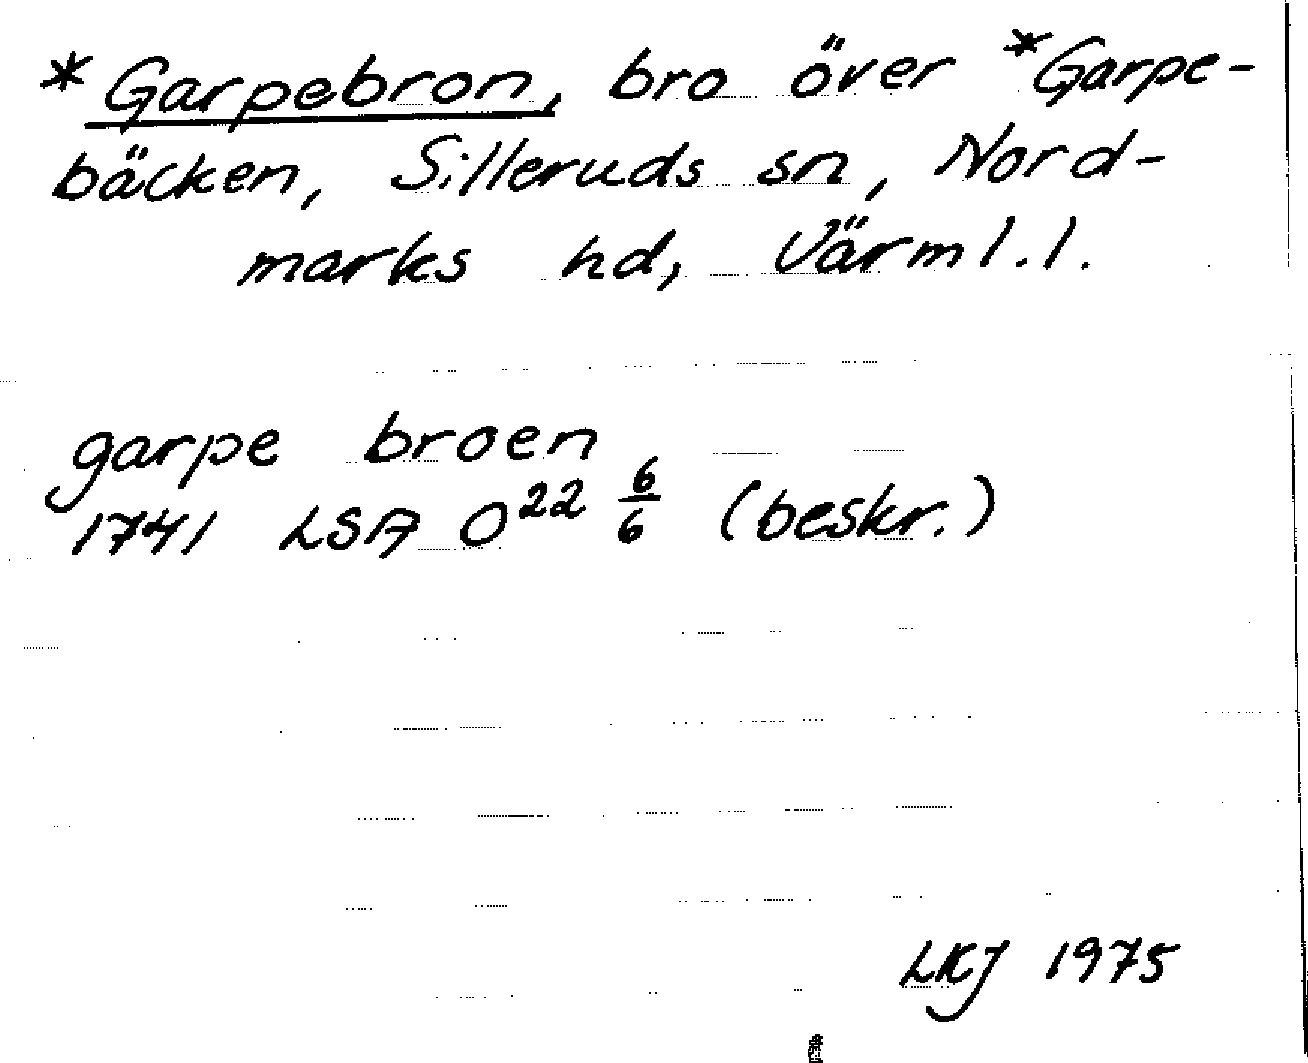 *Garpebron, bro över *Garpe-
bäcken, Silleruds sn, Nord-
marks hd, Värml.l.
garpe broen
1741 LSA O²² 6/6 (beskr.)
LKJ 1975